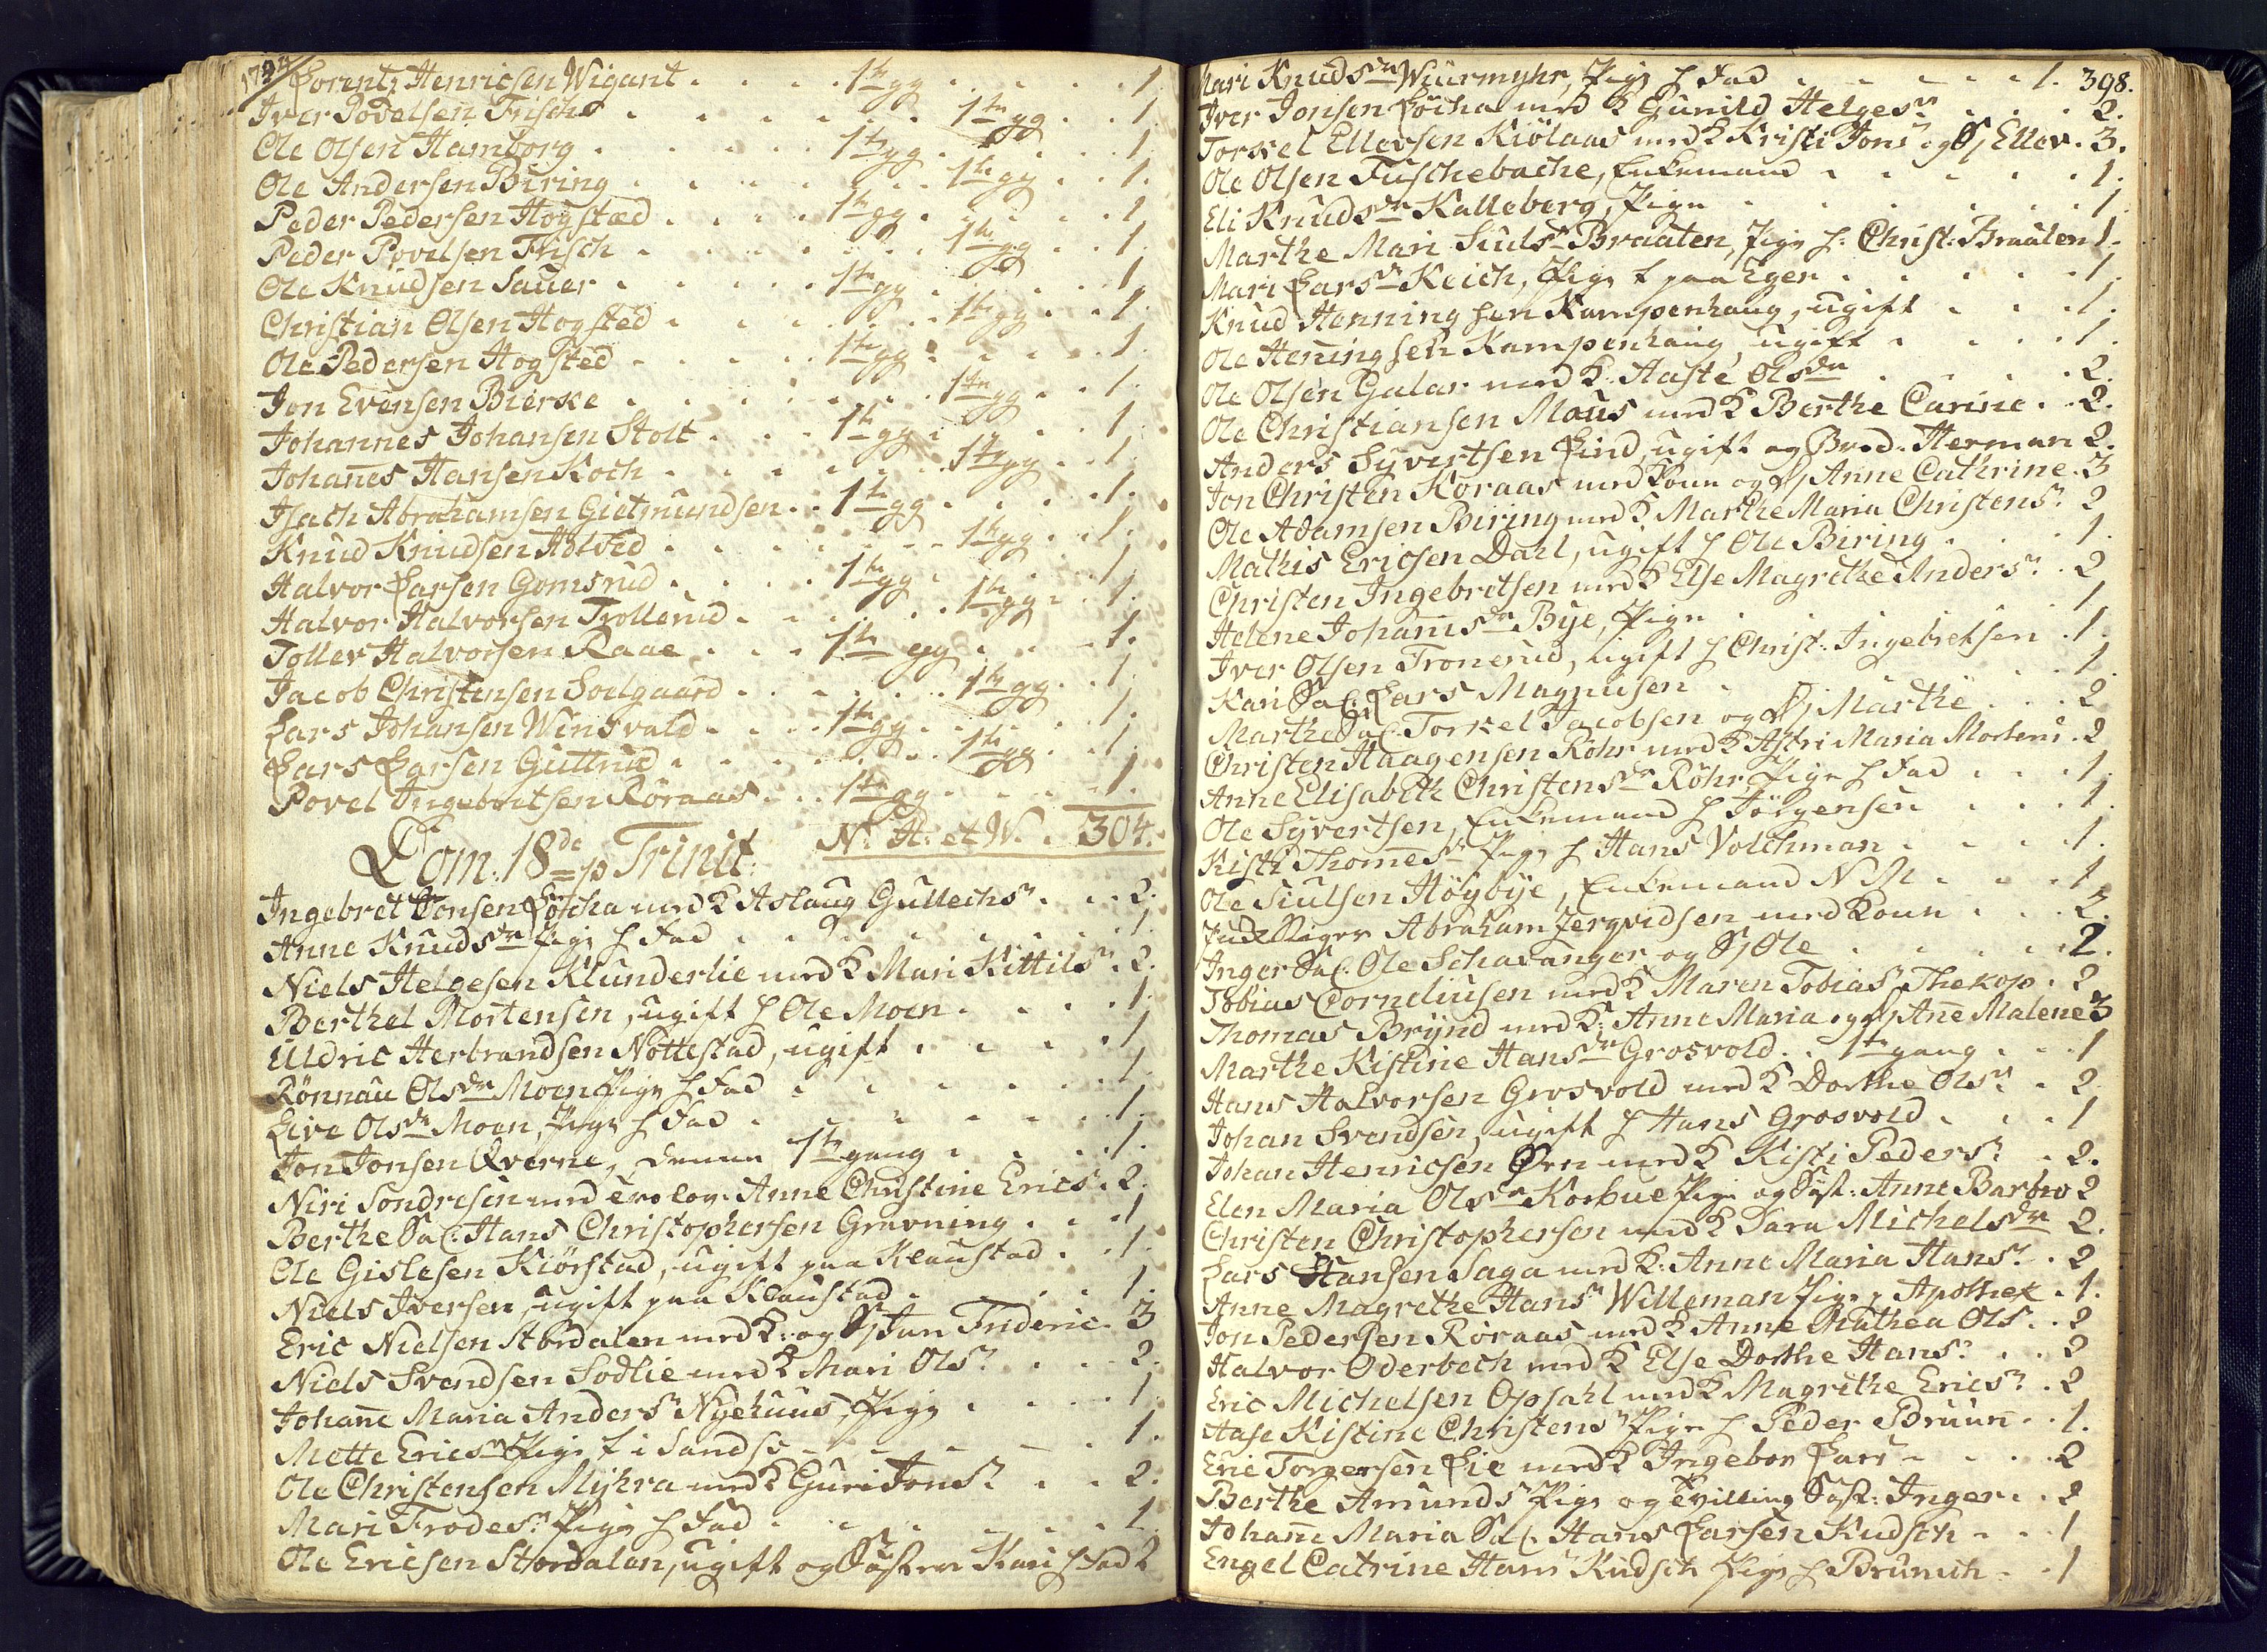 Lorentz Henricsen Wigant . . . . 1te gg . . . . . 1
Iver Povelsen Frisch . . . . . . 1te gg . . 1.
Ole Olsen Hamborg . . . . . 1te gg . . . . 1.
Ole Andersen Biring . . . . . . . 1te gg . . 1.
Peder Pedersen Hogstæd . . . . 1te gg . . . . 1
Peder Povelsen Frisch . . . . . . . 1te gg . . 1.
Ole Knudsen Sauer . . . . . 1te gg . . . . 1.
Christian Olsen Hogsted . . . . . . 1te gg . . . 1.
Ole Pedersen Hogsted . . . . . 1te gg . . . . . 1.
Jon Evensen Bierke . . . . . . . 1te gg . . 1.
Johannes Johansen Stolt . . . 1te gg . . . . 1.
Johanes Hansen Koch . . . . . . . 1te gg . . 1.
Isach Abrahamsen Gietmundsen . . 1te gg . . . . . 1.
Knud Knudsen Holved . . . . . . . 1te gg . . 1.
Halvor Larsen Gomsrud . . . . 1te gg . . . . 1.
Halvor Halvorsen Trollerud . . . . . . 1te gg . . 1.
Tollev Halvorsen Raae . . . 1te gg . . . . 1.
Jacob Christensen Soelgaard . . . . . . 1te gg . . 1.
Lars Johansen Winsvald . . . . 1te gg . . . . . 1.
Lars Larsen Guttrud . . . . . . . 1te gg . . 1.
Povel Ingebretsen Röraas . . . 1te gg . . . . . 1.
N: A: et W. . 304.
Dom: 18de p Trinit:
Ingebret Jonsen Löcha med K Aslaug Gullechsr . . . 2.
Anne Knudsdr Pige h Fad . . . . . . . 1.
Niels Helgesen Klunderlie med K Mari Kittilsr . 2.
Berthel Mortensen, ugift h Ole Moen . . . . 1.
Uldric Herbrandsen Nottestad, ugift . . . . 1
Rönnau Olsdr Moen Pige h Fad . . . . . . 1.
Live Olsdr Moen, Pige h Fad . . . . . . . 1.
Jon Jonsen Qverne, denne 1te gang . . . . 1.
Niri Sondresen med trolov. Anne Christine Erics . 2.
Berthe Sal. Hans Christophersen Grevning . . . 1
Ole Gislesen Kiörstad, ugift paa Klaustad . . 1.
Niels Iversen, ugift paa Klaustad . . . . 1.
Eric Nielsen Stordalen med K: og S Jan Frideric . 3
Niels Svendsen Sodlie med K Mari Olsr . . . 2.
Johane Maria Andersr Nyehuus, Pige . . . . 1
Mette Ericsr Pige t i Sandsv . . . . . 1.
Ole Christensen Myhra med K Guri Jonsr . . 2.
Mari Frodesr Pige h Fad . . . . . . 1.
Ole Ericsen Stordalen, ugift og Söster Kari h Fad 2
398.
Mari Knudsdr Wiurmyhr, Pige h Fad . . . . . 1.
Iver Jonsen Löcha med K Gunild Helgesr . . . 2.
Torkel Ellevsen Kiölaas med K Kristi Jonsr og S Ellev . 3.
Ole Olsen Tuschebache, Enkemand . . . . . 1.
Eli Knudsdr Kalleberg, Pige . . . . . . 1.
Marthe Mari Siulsr Braaten, Pige h: Christ: Braaten 1.
Mari Larsdr Keich, Pige t paa Eger . . . . . 1.
Knud Henningsen Kampenhaug, ugift . . . 1.
Ole Heningsen Kampenhaug ugift . . . . 1.
Ole Olsen Gular med K: Aaste Olsdr . . . . 2.
Ole Christiansen Mous med K Berthe Carine . . 2.
Anders Syvertsen Lind, ugift og Brod. Herman 2.
Jon Christen Koraas med Kone og D Anne Cathrine . 3
Ole Adamsen Biring med K Marthe Maria Christensr 2
Mathis Ericsen Dahl, ugift h Ole Biring . . . 1.
Christen Ingebretsen med K Else Magrethe Andersr . 2
Helene Johansdr Bye, Pige . . . . . . 1
Iver Olsen Tronerud, ugift h Christ: Ingebretsen . 1.
Kari Sal. Lars Magnusen . . . . . 1.
Marthe Sal. Torkel Jacobsen og D Marthe . . . 2
Christen Haagensen Röhr med K Astri Maria Mortens . 2
Anne Elisabeth Christensdr Röhr, Pige h Fad . . . 1.
Ole Syvertsen, Enkemand h Jörgensen . . . 1.
Kisti Thomesr Pige h Hans Volchman . . . . 1.
Ole Siulsen Höybye, Enkemand N M . . . . 1.
Abraham Jergvidsen med Kone . . . 2.
Inger Sal. Ole Schavanger og S Ole . . . . 2.
Tobias Corneliusen med K Maren Tobiasr Thekop . 2
Thomas Brynd med K: Anne Maria og D Ane Malene 3
Marthe Kistine Hansdr Grosvold . . 1te gang . . . 1
Hans Halvorsen Grosvold med K Dorthe Olsr . 2.
Johan Svendsen, ugift h Hans Grosvold . . . 1
Johan Henricsen Örn med K Kisti Pedersr . 2.
Elen Maria Olsr Korbue Pige og Söst: Anne Barbro 2
Christen Christophersen med K Sara Michelsdr 2.
Lars Hansen Saga med K: Anne Maria Hansr . . 2
Anne Magrethe Hansr Willeman Pige p Apothek . 1.
Jon Pedersen Röraas med K Anne Mathea Ols . . 2
Halvor Oderbech med K Else Dorthe Hansr . . 2
Eric Michelsen Opsahl med K Magrethe Ericsr . 2
Aase Kistine Christensr Pige h Peder Bruun . . 1.
Eric Torgersen Lie med K Ingebor Lars . . . . 2
Berthe Amundsr Pige og Tvilling Söst: Inger . . 2
Johane Maria Sal. Hans Larsen Kudsch . . . 1
Engel Catrine Hansr Kudsch Pige h Brunich . . 1